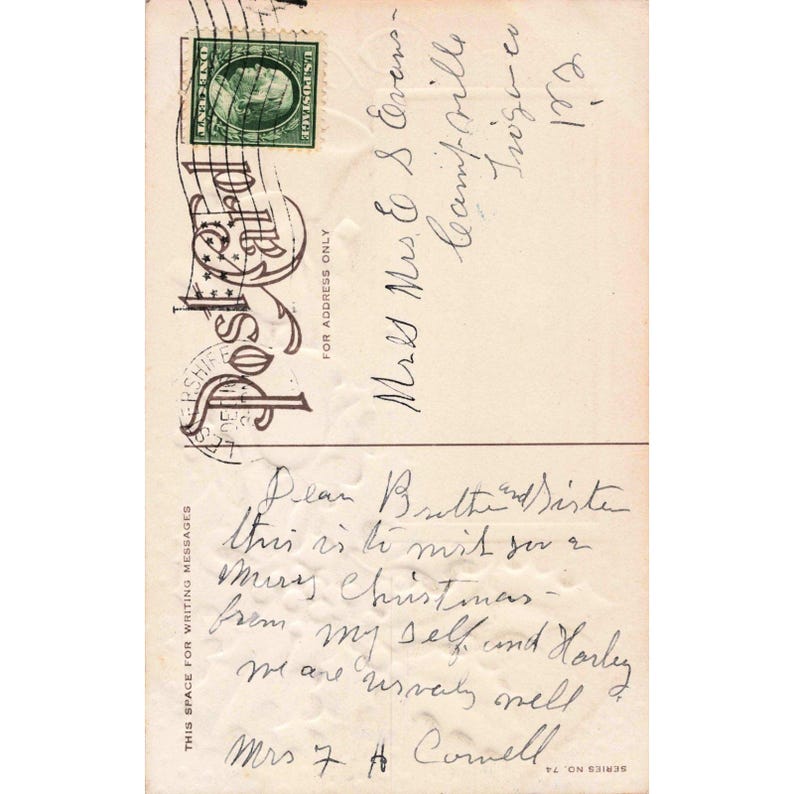 U.S. POSTAGE
ONE CENT
Post Card
FOR ADDRESS ONLY
Mr & Mrs E S Evans-
Campville
Tioga co
N.Y.
THIS SPACE FOR WRITING MESSAGES
Dear Brother and Sister
this is to wish you a
Merry Christmas-
from my self and Harley
we are usualy well.
Mrs F H Cornell
SERIES NO. 74